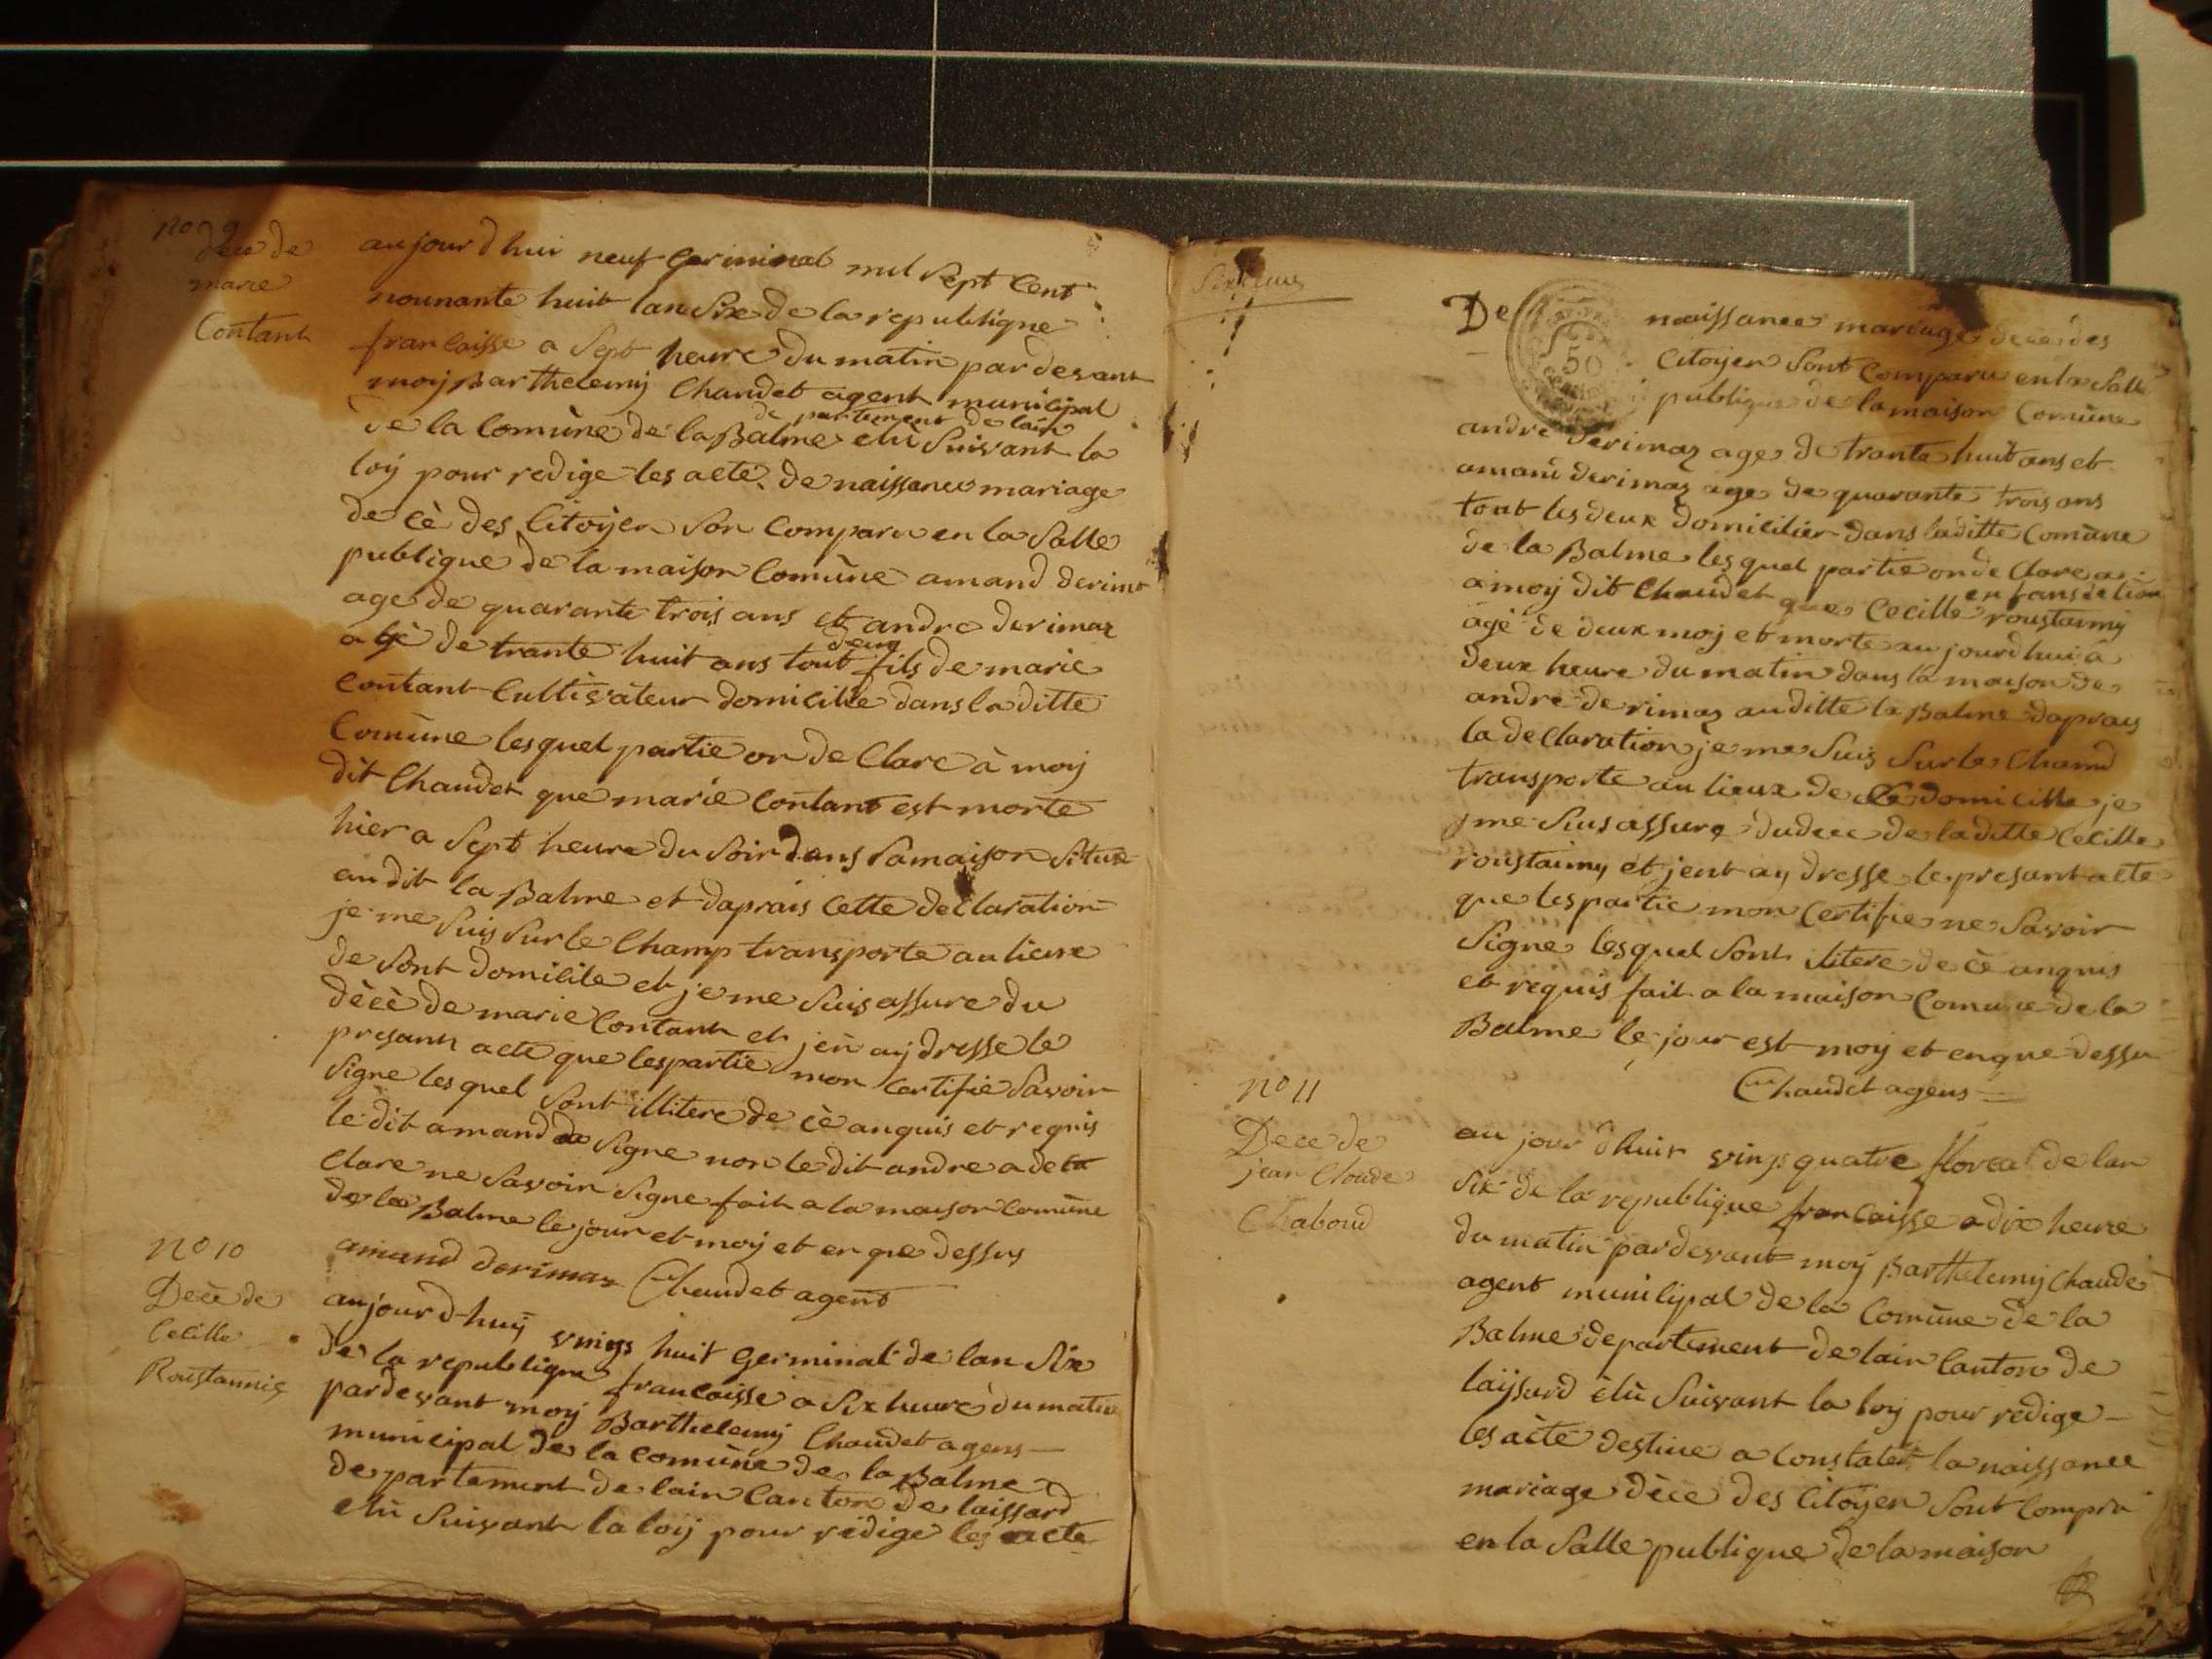 no 9
dece de
marie
Contant
aujourdhui neuf Germinal mil sept cent
nounante huit lan six de la republique
francaisse a sept heure du matin pardevant
moÿ Barthelemÿ Chaudet agent municipal
departement de lain
de la Comùne de la Balme elú suivant la
loÿ pour redige les acte de naissance mariage
de cè des Citoÿen son comparu en la salle
publique de la maison Comùne amand derimo
age de quarante trois ans et andre derimaz
agè de trante huit ans tout deux fils de marie
contant Cultivateur domicilie dans la ditte
Comùne lesquel partie on de Clare à moÿ
dit Chaudet que marie Contant est morte
hier a sept heure du soir dans sa maison situe
au dit la Balme et daprais cette declaration
je me suis sur le Champ transporte au lieux
de sont domicile et je me suis assure du
dècè de marie Contant et jen aÿ dresse le
presant acte que les partie mon certifie savoir
signe lesquel sont illitere de cè anquis et requis
le dit amand a signe non le dit andre a de
Clare ne savoir signe fait a la maison Comùne
de la Balme le jour et moÿ et en que dessus
amand derimaz Chaudet agent
no 10
Decè de
Cecille
Roustannie
aujourd-huÿ vings huit Germinal de lan six
de la republique francaisse a six heure du matin
pardevant moÿ Barthelemÿ Chaudet agens
municipal de la comùne de la Balme
departement de lain Canton de laissard
elú suivant la loÿ pour redige les acte
Sixieme
De naissance mariage dece des
50
Citoÿen sont comparu en la salle
publique de la maison Comùne
andre derimaz age de trante huit ans et
amand derimaz age de quarante trois ans
tout les deux domicilier dans laditte Comùne
de la Balme lesquel partie on de Clare a
a moÿ dit Chaudet que Cecille roustaimÿ
agé de deux moj et morte aujourdhui a
deux heure du matin dans la maison de
andre derimaz auditte la Balme daprais
la declaration je me suis sur le Chamd
transporte au lieux de domicille je
me suis assure du dece de laditte Cecille
roustaimy et jent aÿ dresse le presant acte
que les partie mon certifie ne savoir
signe lesquel sont ilitere de cè anquis
et requis fait a la maison Comune de la
Balme le jour est moÿ et en que dessu
Chaudet agens
no 11
Dece de
jean Claude
Chaboud
au jour dhuit vings quatre floreal de lan
six de la republique francaisse a dix heure
du matin pardevant moÿ Barthelemÿ Chaude
agent municipal de la Comùne de la
Balme departement de lain Canton de
laÿssard élú suivant la loÿ pour redige
les acte destine a constater la naissance
mariage dèce des Citoÿen sont compru
en la salle publique de la maison